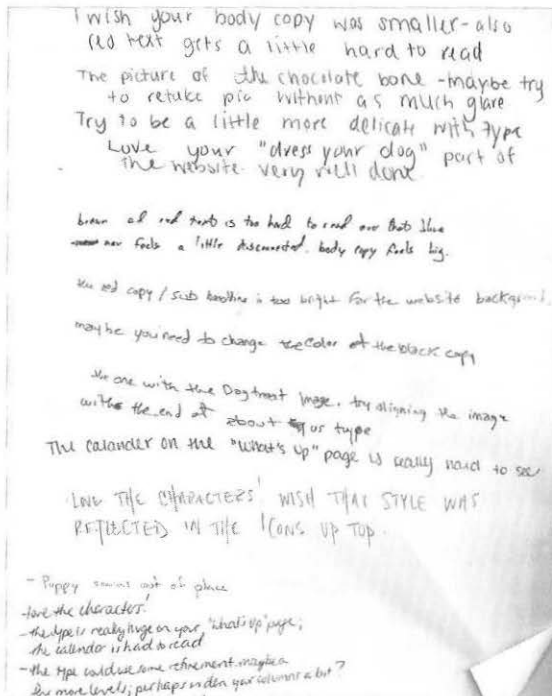 I wish your body copy was smaller-also
red text gets a little hard to read
The picture of the chocolate bone -maybe try
to retake pic without as much glare
Try to be a little more delicate with type
Love your "dress your dog" part of
the website. very well done.
brown and red text is too hard to read over that blue
nav feels a little disconnected. body copy feels big.
the red copy / sub headline is too bright for the website background
maybe you need to change the color of the black copy
the one with the Dogtreat Image. try aligning the image
with the end of about us type
The calander on the "what's up" page is really hard to see
LOVE THE CHARACTERS! WISH THAT STYLE WAS
REFLECTED IN THE ICONS UP TOP.
- Puppy seems out of place
-love the characters!
- the type is really huge on your "what's up" page;
the calendar is had to read
- the type could use some refinement maybe a
few more levels; perhaps widen your columns a bit?